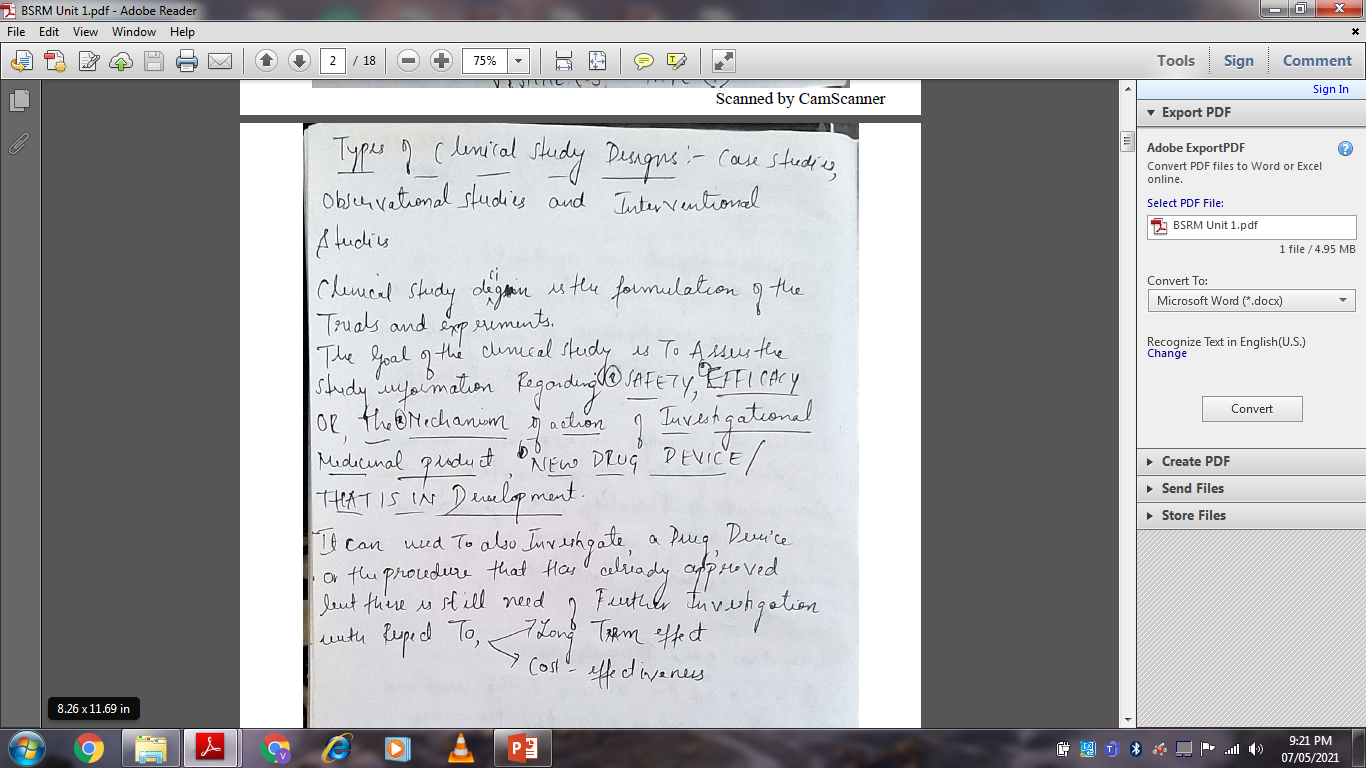 BSRM Unit 1.pdf - Adobe Reader
File Edit View Window Help
2 / 18 75% Tools Sign Comment
Scanned by CamScanner
Types of Clinical study Designs :- Case studies,
Observational studies and Interventional
Studies
Clinical study design is the formulation of the
Trials and experiments.
The Goal of the clinical study is To Assess the
study information Regarding ① SAFETY, EFFICACY
OR, the Mechanism of action of Investigational
Medicinal product, NEW DRUG DEVICE/
THAT IS IN Development.
It can used To also Investigate, a Drug, Device
or the procedure that Has already approved
but there is still need of Further Investigation
with Respect To, Long Term effect
Cost - effectiveness
8.26 x 11.69 in
Sign In
Export PDF
Adobe ExportPDF
Convert PDF files to Word or Excel
online.
Select PDF File:
BSRM Unit 1.pdf
1 file / 4.95 MB
Convert To:
Microsoft Word (*.docx)
Recognize Text in English(U.S.)
Change
Convert
Create PDF
Send Files
Store Files
9:21 PM
07/05/2021